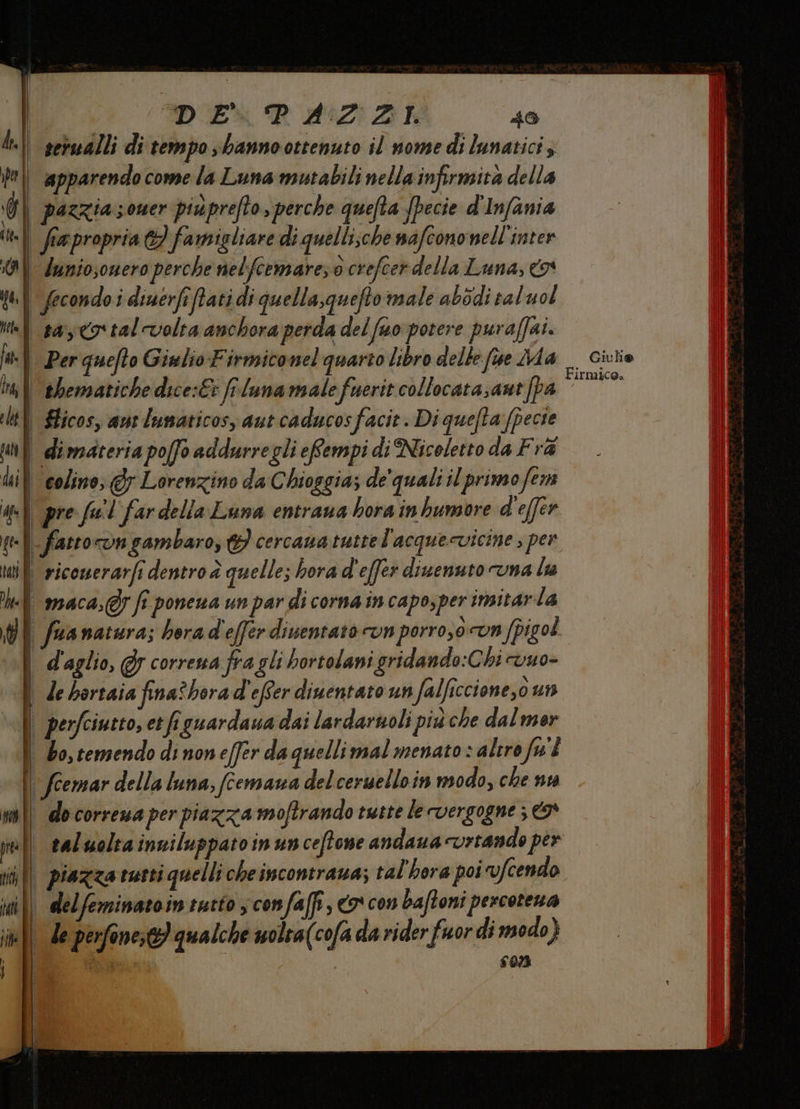 DE' PAZZI. 40
teruallidi tempo, hanno ottenuto il nome di lunatici,
apparendo come la Luna mutabili nella infirmità della
pazzia; ouer piùpresto, perche questa specie d'Insania
sia propria & famigliare di quelli, che nascono nell'inter
lunio, ouero perche nel scemare, ò crescer della Luna, &
secondo i diuersi stati di quella, questo male abōdi tal uol
ta, & tal volta anchora perda del suo potere pur assai.
Per questo Giulio Firmico nel quarto libro delle sue Ma
thematiche dice: Et si luna male fuerit collocata, aut spa
sticos, aut lunaticos, aut caducos facit. Di questa specie
di materia posso addurre gli essempi di Nicoletto da Frā
colino, & Lorenzino da Chioggia; de' quali il primo sem
pre su'l far della Luna entraua hora in humore d'esser
fatto vn gambaro, & cercaua tutte l'acque vicine, per
ricouerarsi dentro à quelle; hora d'esser diuenuto vna lu
maca, & si poneua un par di corna in capo, per imitar la
sua natura; hora d'esser diuentato vn porro, ò vn spigol
d'aglio, & correua fra gli hortolani gridando: Chi vuo-
le hortaia fina? hora d'esser diuentato un salsiccione, ò un
persciutto, et si guardaua dai lardaruoli più che dal mor
bo, temendo di non esser da quelli mal menato: altro su'l
scemar della luna, scemaua del ceruello in modo, che nu
do correua per piazza mostrando tutte le vergogne; &
tal uolta inuiluppato in un cestone andaua vrtando per
piazza tutti quelli che incontraua; tal'hora poi vscendo
del seminato in tutto, con sassi, & con bastoni percoteua
le persone, & qualche uolta (cosa da rider fuor di modo)
con
Giulio
Firmico.